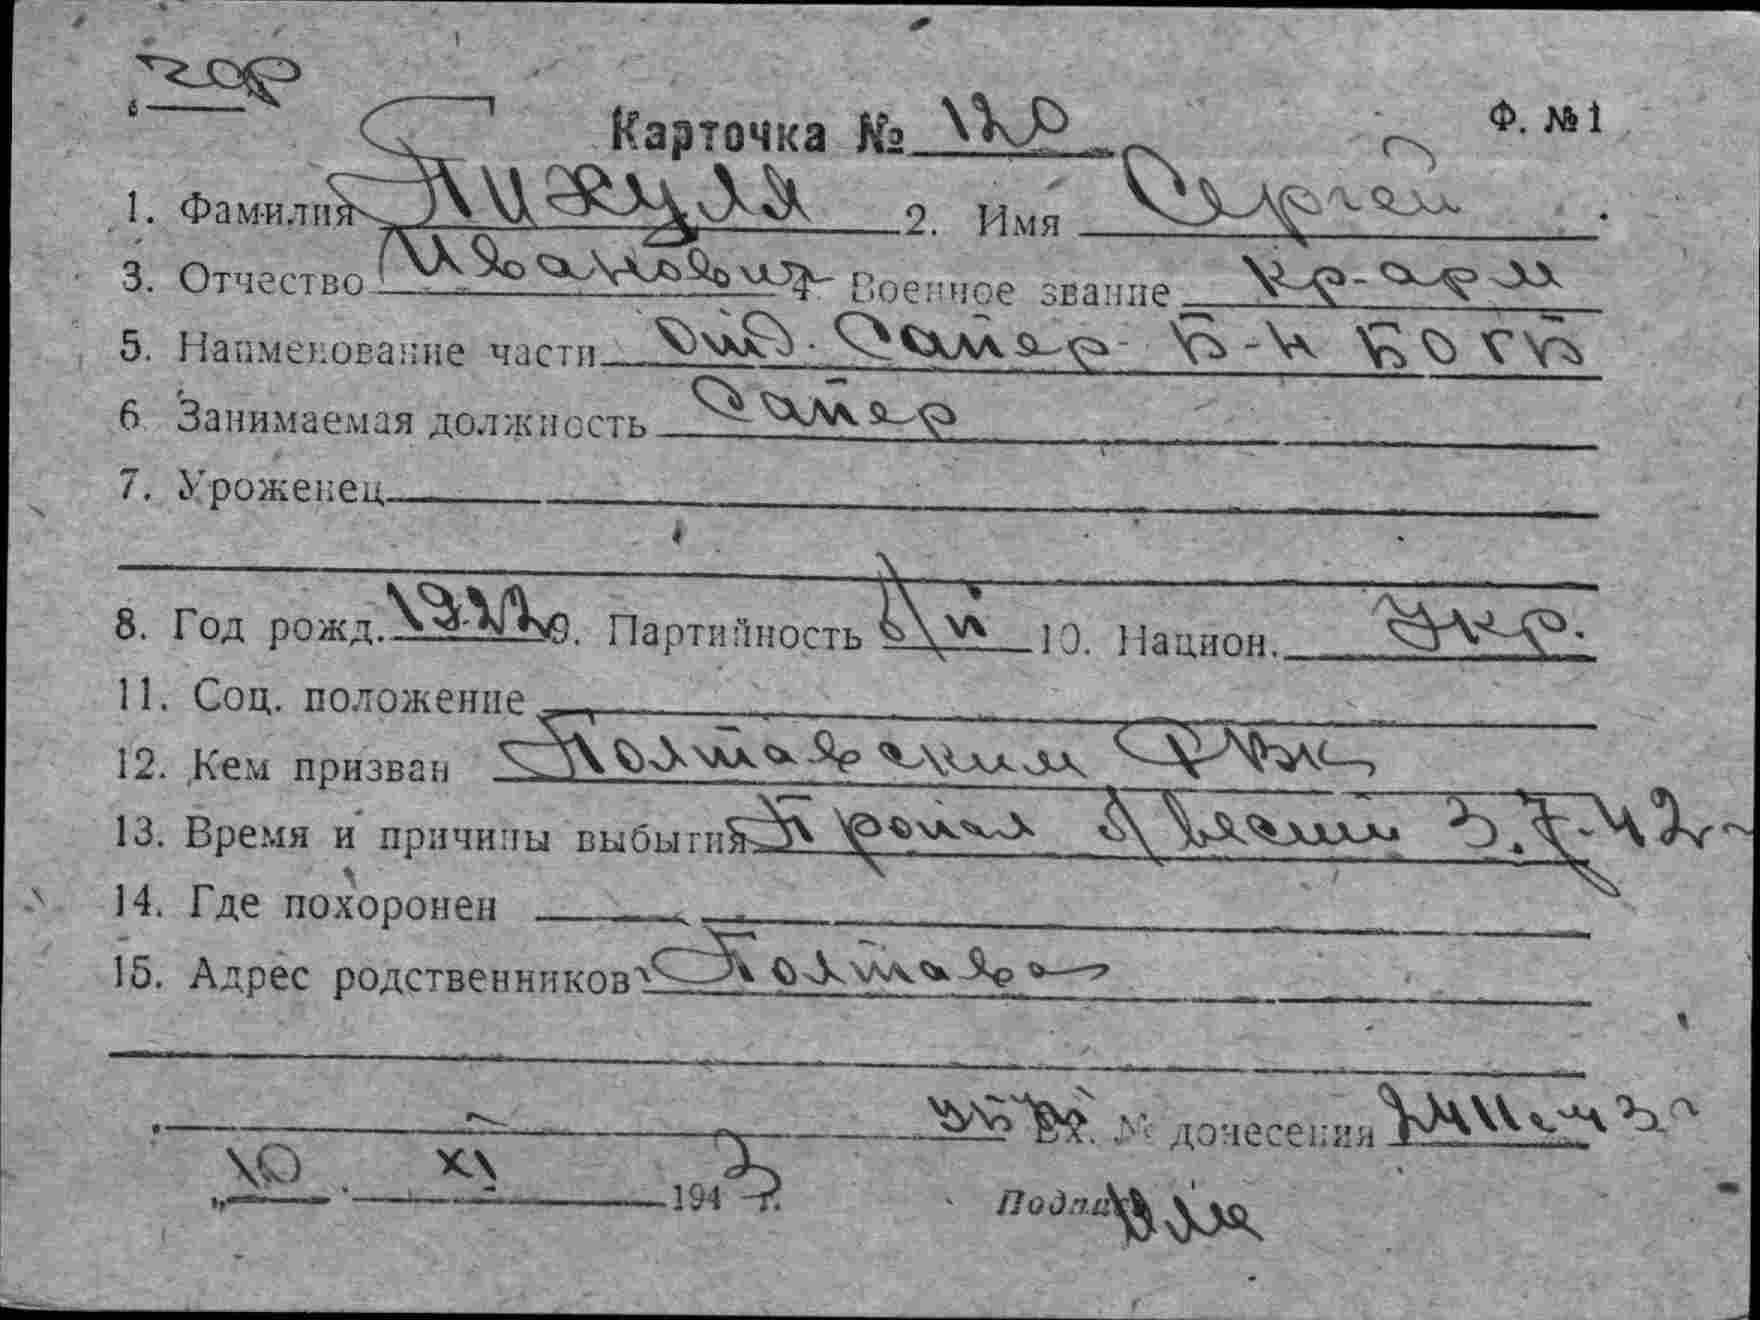 гор
Карточка № Ф. № 1
1. Фамилия Пижуля 2. Имя Сергей
3. Отчество Иванович Военное звание кр-арм
5. Наименование части Отд. Сапер б-н БОГБ
6 Занимаемая должность Сапер
7. Уроженец
8. Год рожд. 9. Партийность б/п 10. Национ. Укр.
11. Соц. положение
12. Кем призван Полтавским РВК
13. Время и причины выбытия Пропал 3.7.42
14. Где похоронен
15. Адрес родственников Полтава
Вх. № донесения
„10 XI 1943 г.
Подпись